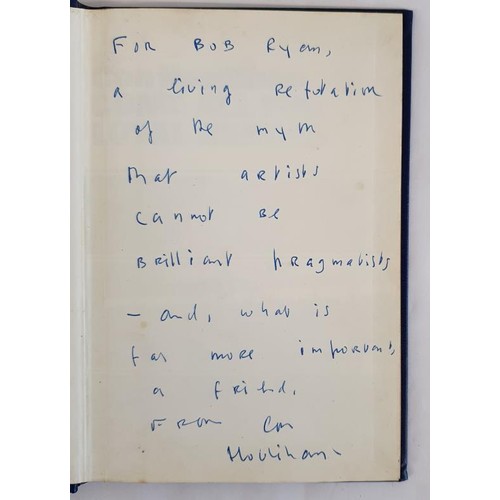 For Bob Ryan,
a living refutation
of the myth
that artists
cannot be
brilliant pragmatists
- and, what is
far more important,
a friend,
from Con
Houlihan.